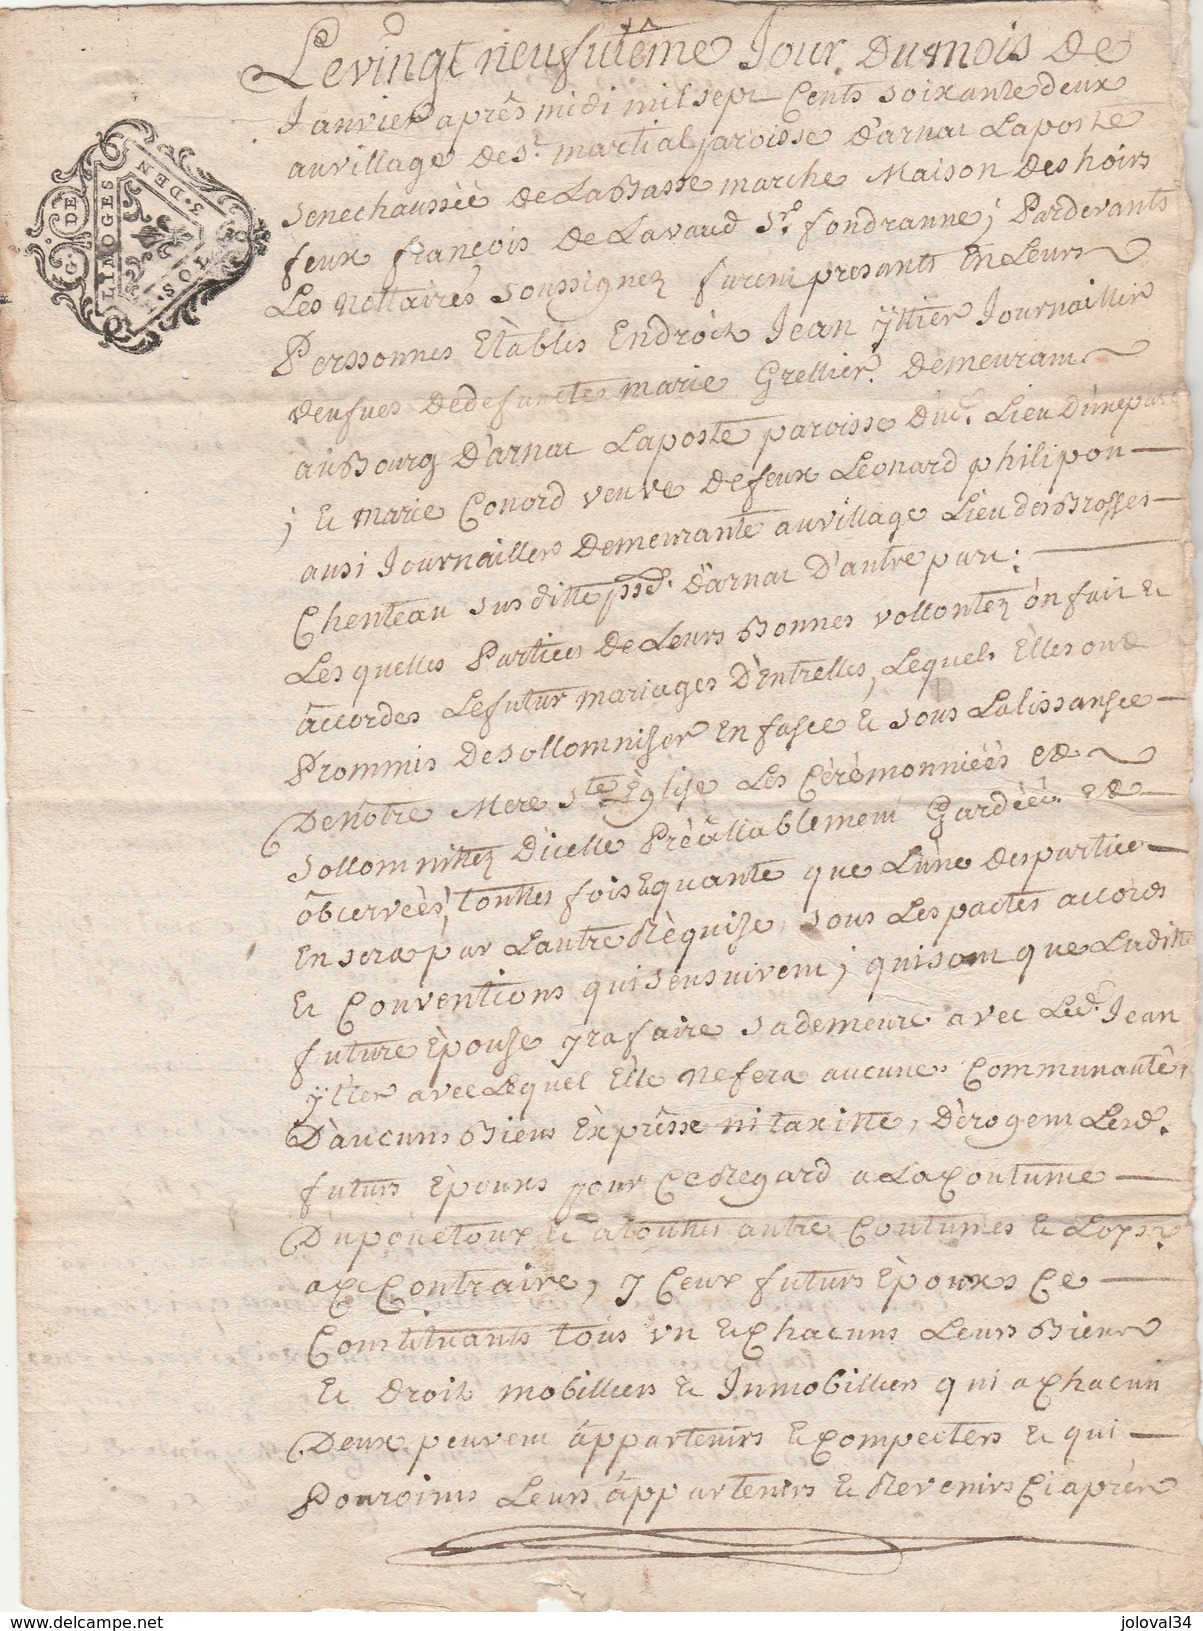 G. DE
LIMOGES
3. DEN
SOL
Le vingt neufvième Jour du mois de
Janvier après midi mil sept Cents soixante deux
au village de St. martial paroisse d'arnac Laposte
senechaussèè de La Basse marche Maison des hoirs
feux françois de Lavaud Sr. fondranne; Pardevants
Les nottaires soussignez furent presants En Leurs
Personnes Etablis Endroit Jean yttier Journaillier
veufves de defuncte marie Grellier. demeurant
au Bourg d'arnac Laposte paroisse dud. Lieu d'une part
; et marie Conord veuve de feux Leonard philipon
ausi Journailliers demeurante au village Lieu des Brosses
Chenteau sus ditte psse. d'arnac D'autre part:
Les quelles Parties de Leurs Bonnes vollontez on fait et
accordes Le futur mariages D'Entrelles, Lequels Elles ont
Prommis de sollomniser En fasce et sous La lissansce
De Notre Mere Ste. Eglise Les Cèrèmonniéés et
sollomnittez D'icelle Prèàllablement Gardéés et
observéés, touttes fois et quante que L'une des partie
En sera par L'autre Rèquise, sous Les pactes accords
et Conventions qui s'ensuivent; qui sont que Laditte
future Epouse yra faire sa demeure avec Led. Jean
yttier avec Lequel Elle ne fera aucunes Communauté,
D'aucuns Biens Exprèsse ni taxitte, Dèrogent Lesd.
futurs Epouxs pour Ce Regard a La Coutume
Du poue toux et a touttes autre Coutumes et Loys
a Ce Contraire, y Ceux futurs Epouxs Ce
Constituants tous un et Chacuns Leurs Biens
et droit mobilliers et Immobilliers qui a Chacun
Deux peuvent appartenirs et Compecters et qui
Pouroints Leurs appartenirs et Revenirs Ci aprèr
www.delcampe.net
joloval34